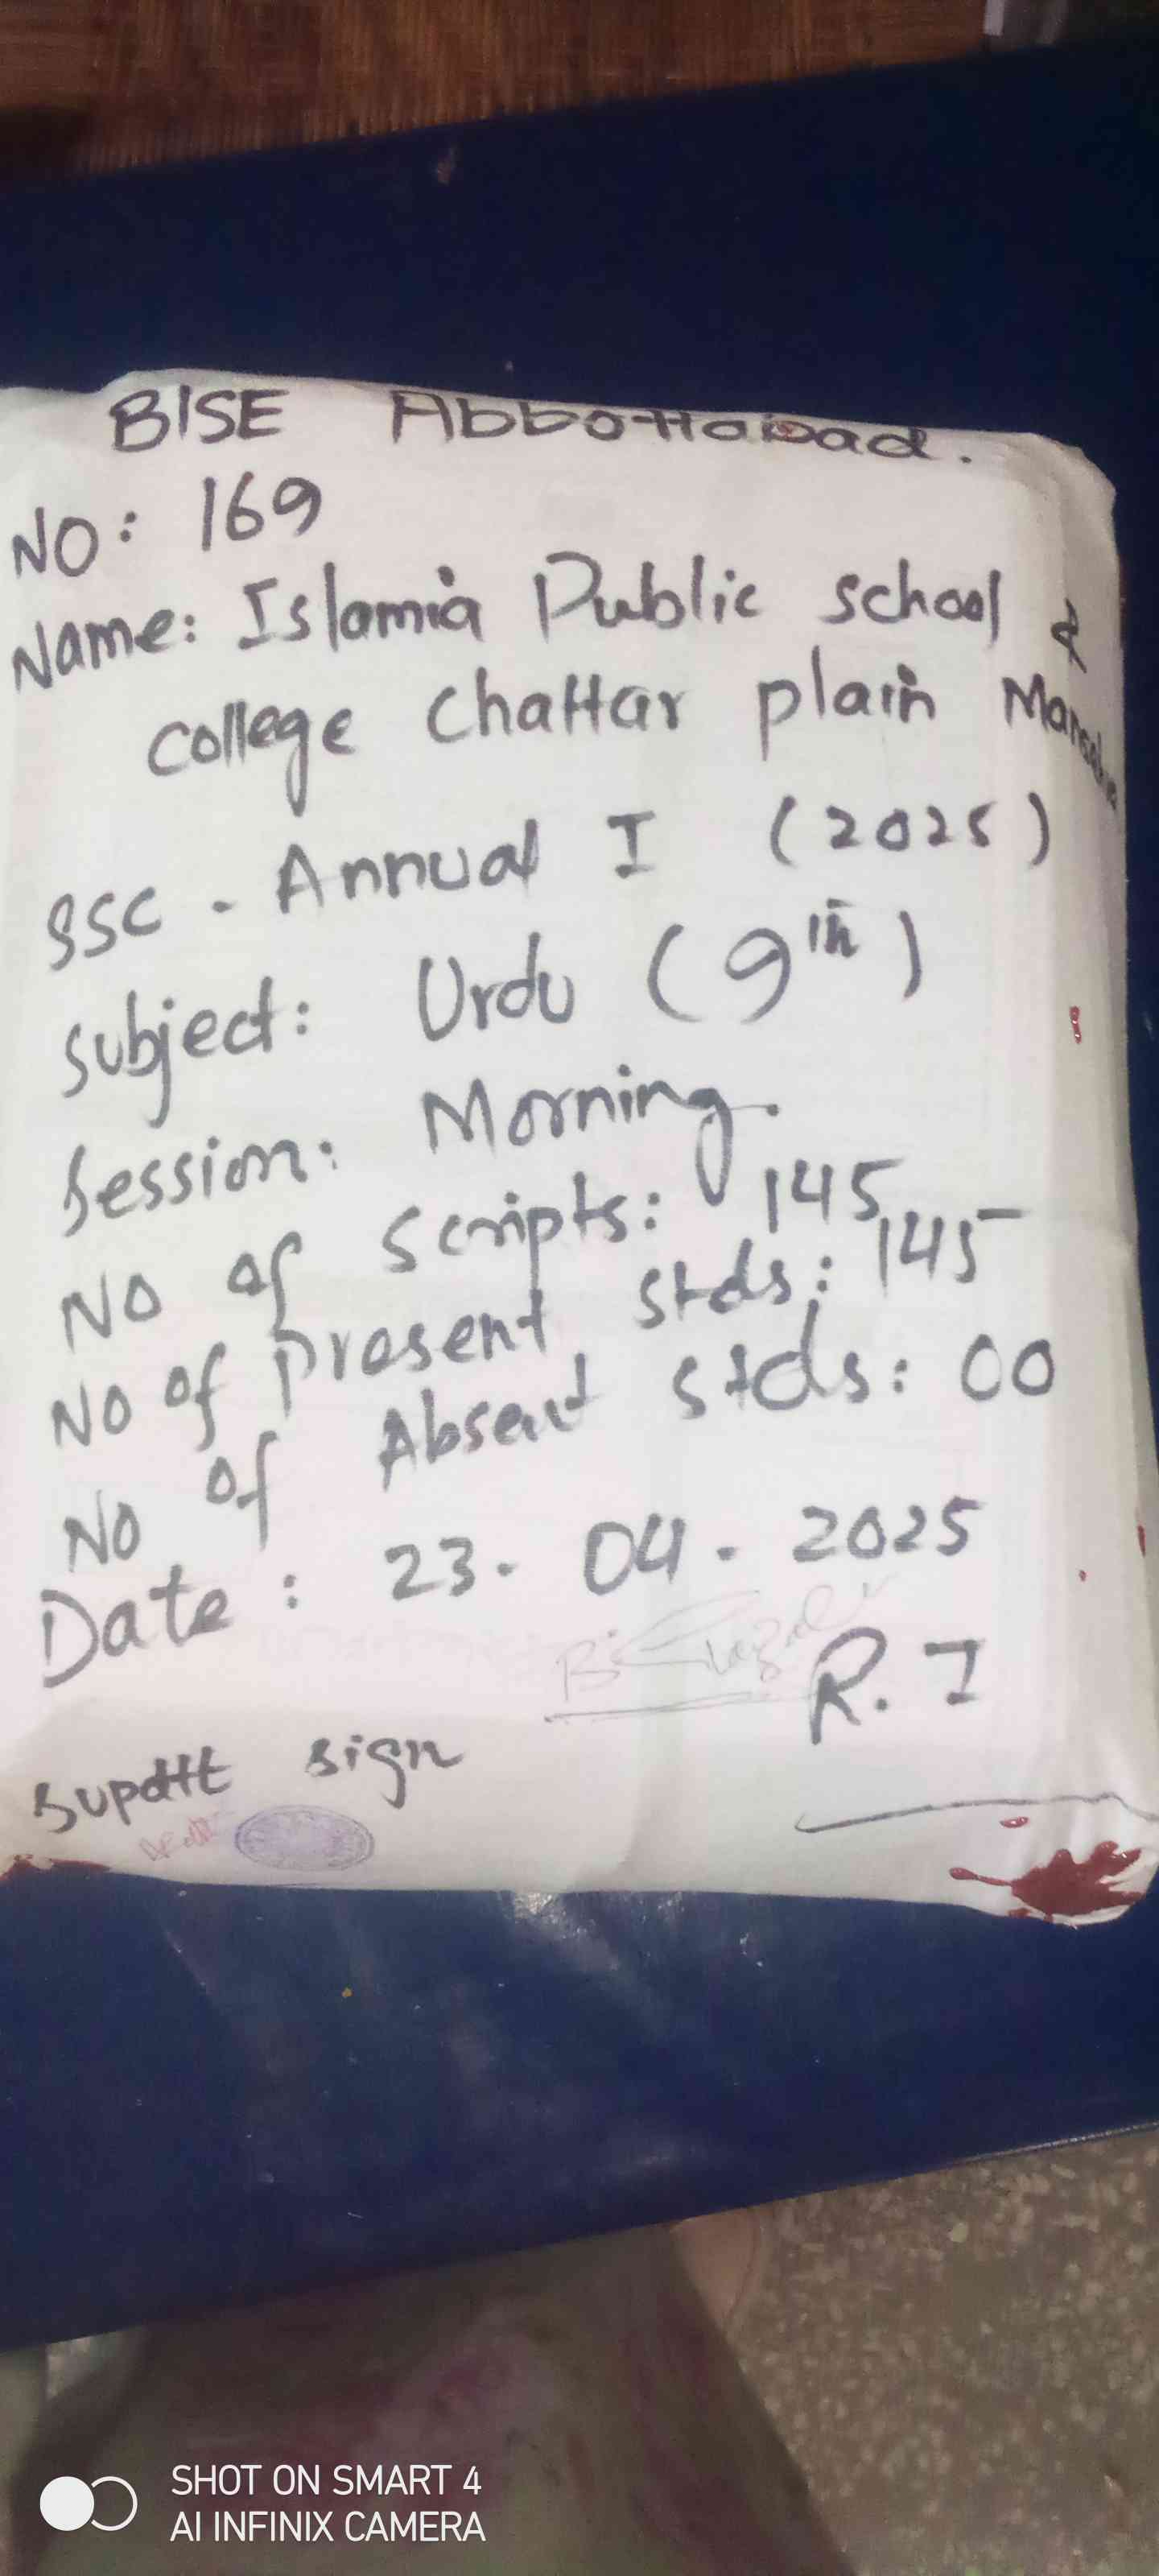 BISE Abbottabad.
NO: 169
Name: Islamia Public school &
college Chattar plain Mansehra
SSC - Annual I (2025)
Subject: Urdu (9th)
Session: Morning.
NO of Scripts: 145
NO of Present Stds: 145
NO of Absent Stds: 00
Date: 23. 04. 2025
R. I
Supdtt sign
SHOT ON SMART 4
AI INFINIX CAMERA